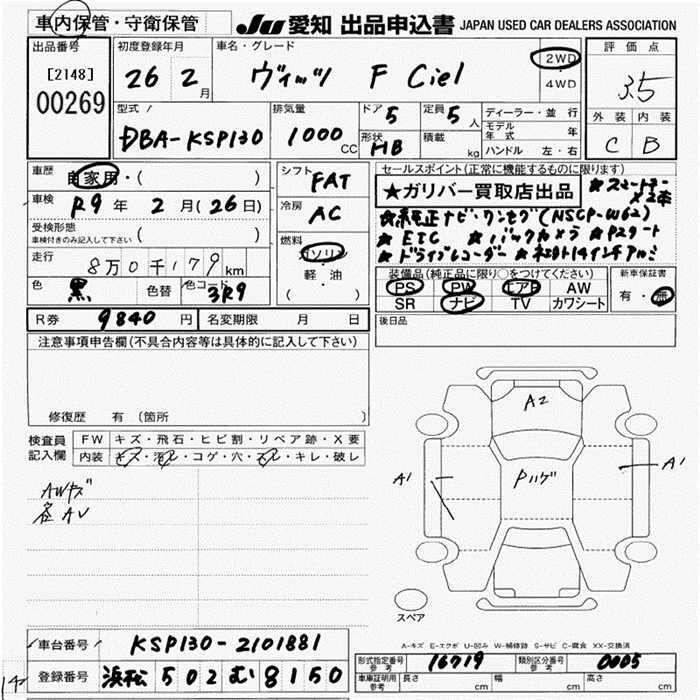 車内保管・守衛保管
JU 愛知 出品申込書 JAPAN USED CAR DEALERS ASSOCIATION
出品番号 [2148] 00269
初度登録年月 26 2月
車名・グレード ヴィッツ F Ciel
2WD ・ 4WD
評価点 3.5
外装 内装
C B
型式 DBA-KSP130
排気量 1000 CC
ドア 5 形状 HB
定員 5人 積載 kg
ディーラー・並行
モデル年式 年
ハンドル 左・右
車歴 自家用・( )
車検 R9年 2月(26日)
受検形態 車検付きのみ記入して下さい ( )
走行 8万0千179km
色 黒 色替 色コード 3R9
シフト FAT
冷房 AC
燃料 ガソリン ・ 軽・油 ( )
セールスポイント(正常に機能するものに限ります)
★ガリバー買取店出品 ★スマートキー×2本
★純正ナビ・ワンセグ(NSCP-W62)
★ETC ★バックカメラ ★Pスタート
★ドライブレコーダー ★社外14インチアルミ
装備品(純正品に限り○をつけてください)
PS PW エアB AW
SR ナビ TV カワシート
新車保証書 有・無
R券 9840円 名変期限 月 日
後日品
注意事項申告欄(不具合内容等は具体的に記入して下さい)
修復歴 有 (箇所 )
検査員記入欄
FW キズ・飛石・ヒビ割・リペア跡・X要
内装 キズ・汚レ・コゲ・穴・スレ・キレ・破レ
AWキズ
各AU
A2
A1
A1
スペア
A-キズ E-エクボ U-凹み W-補修跡 S-サビ C-腐食 XX-交換済
車台番号 KSP130-2101881
登録番号 浜松 502 む 8150
形式指定番号 参考 16719 類別区分番号 参考 0005
車庫証明用 参考 長さ cm 幅 cm 高さ cm